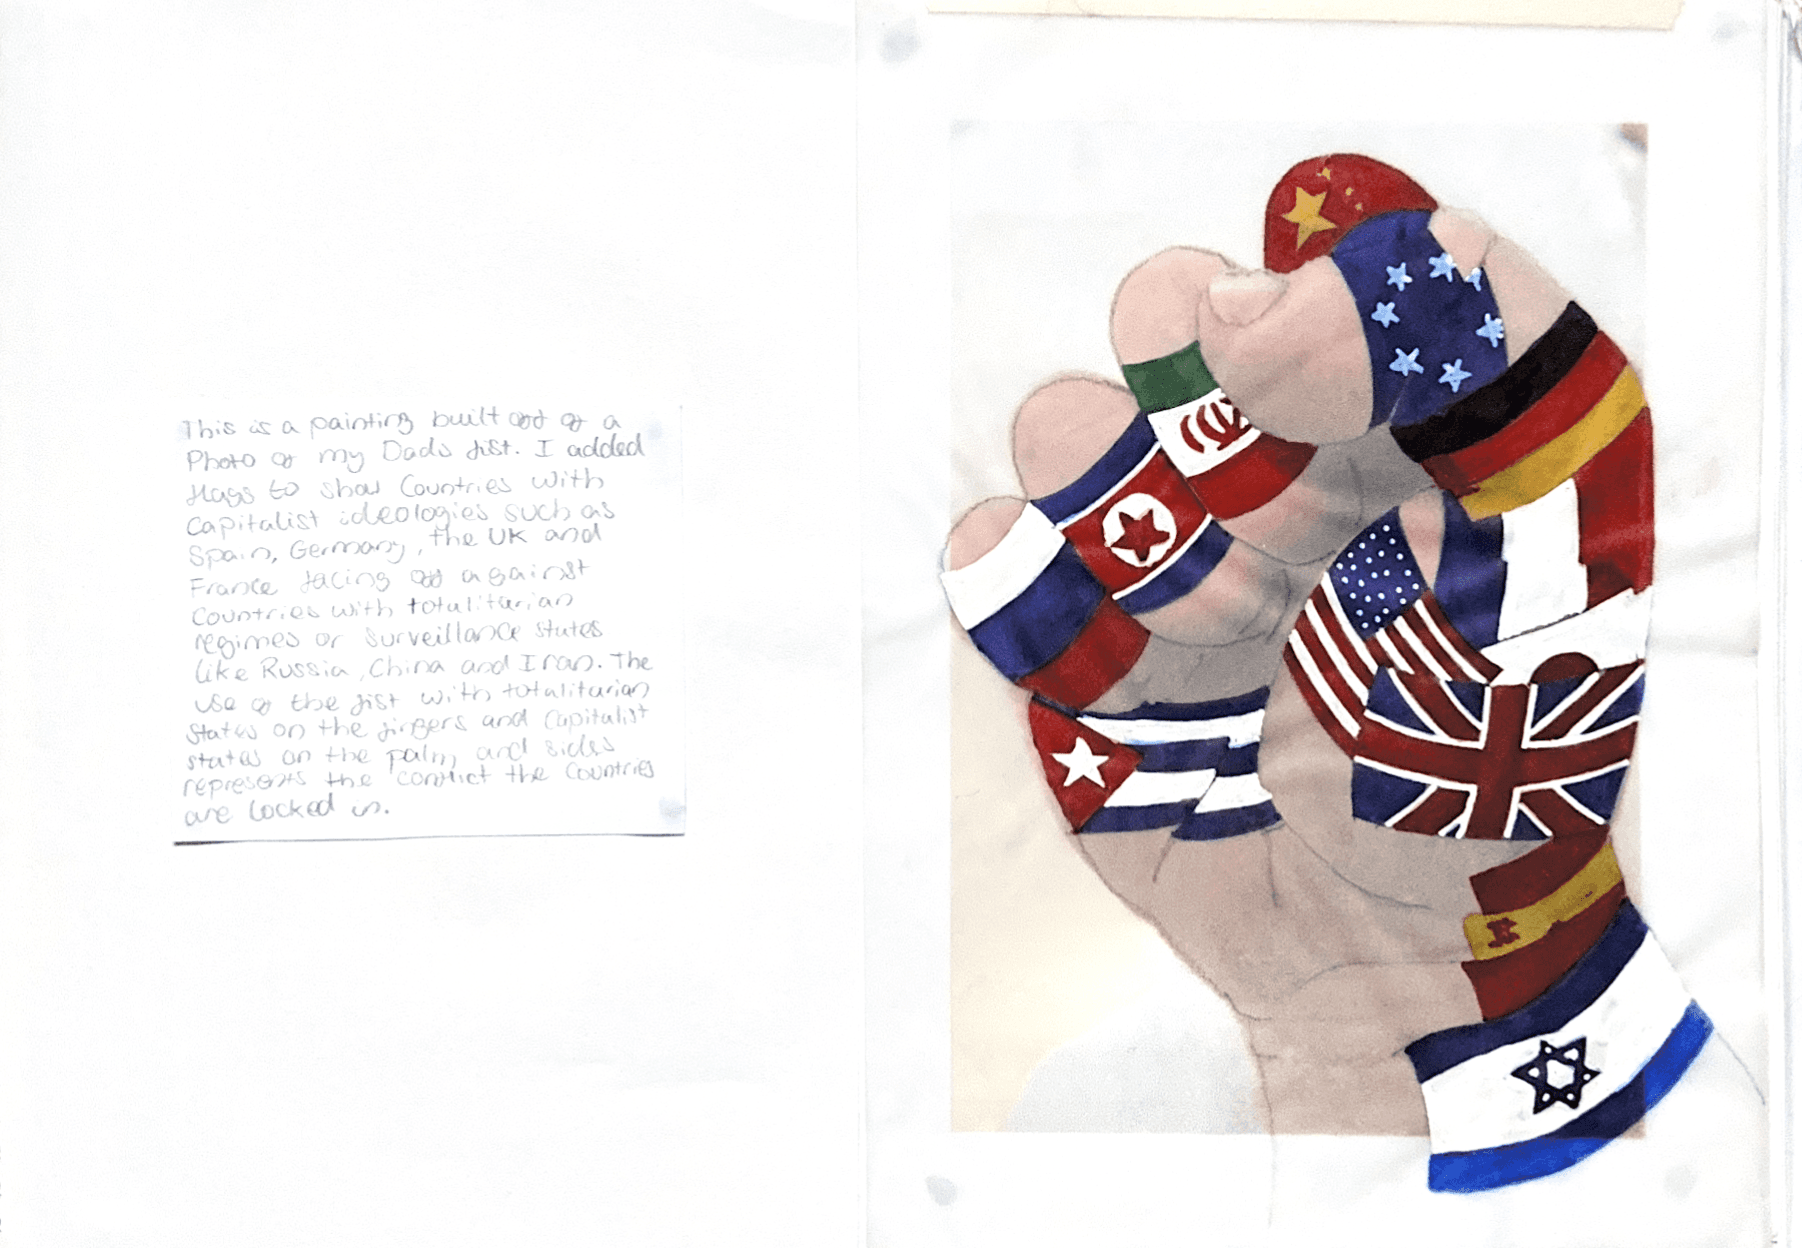 This is a painting built off of a
Photo of my Dads fist. I added
flags to show Countries with
Capitalist ideologies such as
Spain, Germany, the UK and
France facing off against
Countries with totalitarian
regimes or surveillance states
like Russia, China and Iran. The
use of the fist with totalitarian
States on the fingers and Capitalist
states on the palm and sides
represents the conflict the Countries
are locked in.